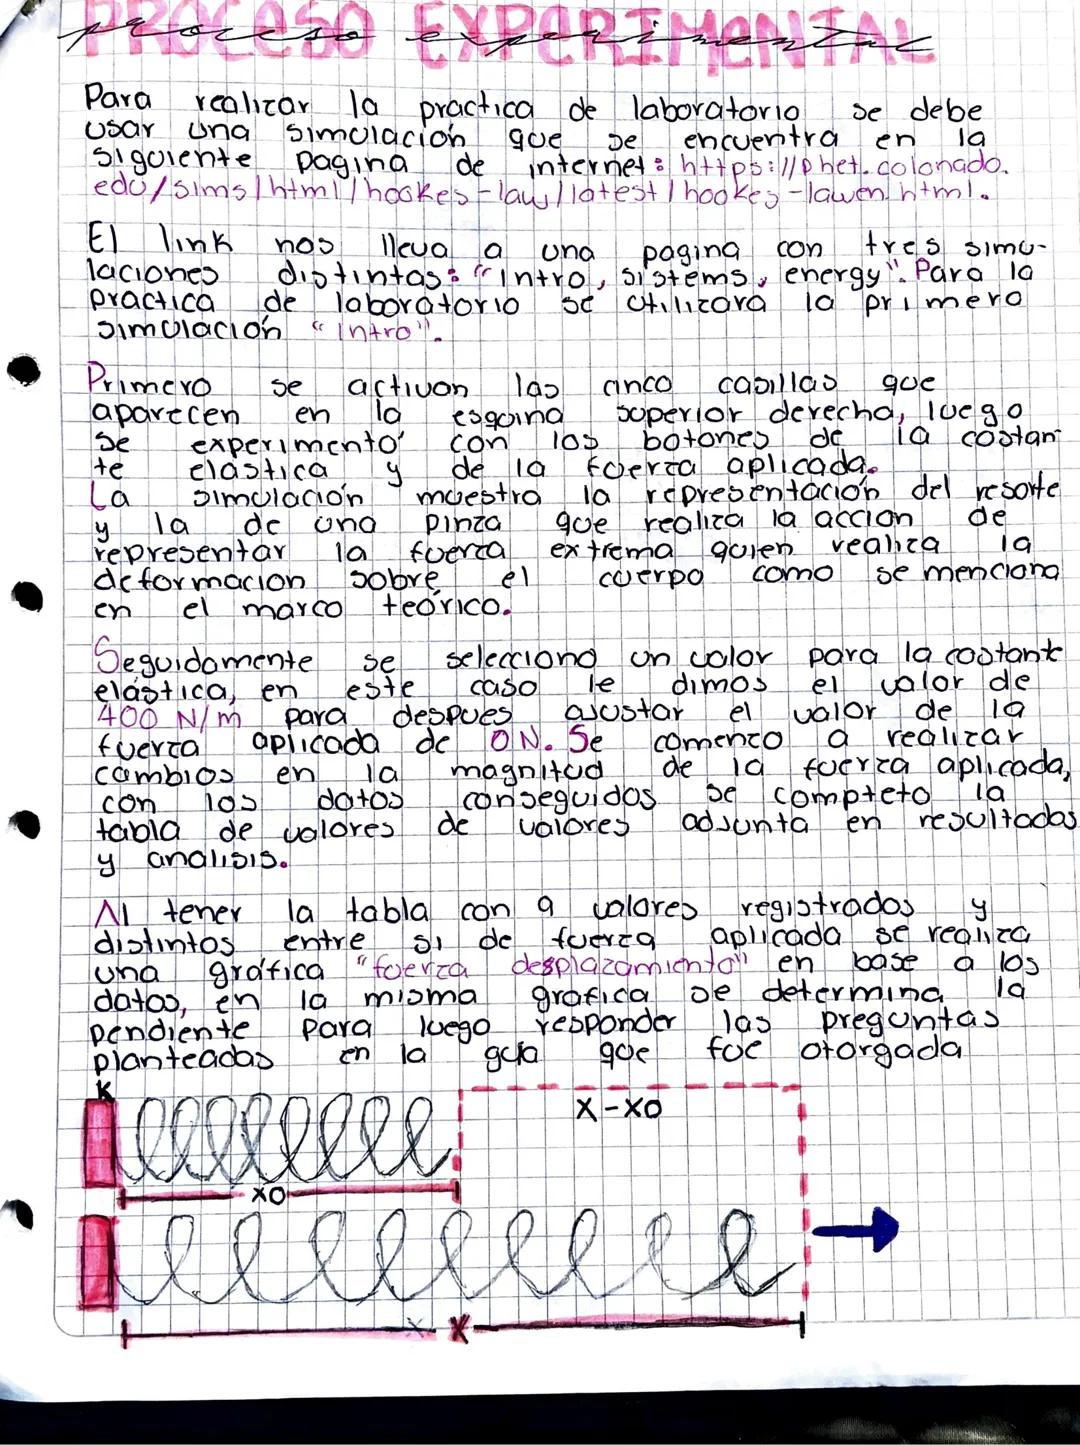 PROCESO EXPERIMENTAL
proceso experimental
Para realizar la practica de laboratorio se debe
usar una simulación que se encuentra en la
siguiente pagina de internet: https://phet.colonado.
edu/sims/html/hookes-law/latest/hookes-lawen.html.
El link nos lleva a una pagina con tres simu-
laciones distintas: "intro, sistems, energy". Para la
practica de laboratorio se utilizara la primera
simulación "Intro".
Primero se activan las cinco casillas que
aparecen en la esquina superior derecha, luego
se experimentó con los botones de la costan
te elastica y de la fuerza aplicada.
La simulación muestra la representación del resorte
y la de una pinza que realiza la accion de
representar la fuerza extrema quien realiza la
deformacion sobre el cuerpo como se menciona
en el marco teórico.
Seguidamente se selecciono un valor para la costante
elástica, en este caso le dimos el valor de
400 N/m para despues ajustar el valor de la
fuerza aplicada de 0N. Se comenzo a realizar
cambios en la magnitud de la fuerza aplicada,
con los datos conseguidos se completo la
tabla de valores de valores adjunta en resultados
y analisis.
Al tener la tabla con 9 valores registrados y
distintos entre si de fuerza aplicada se realiza
una gráfica "fuerza desplazamiento" en base a los
datos, en la misma grafica se determina la
pendiente para luego responder las preguntas
planteadas en la guia que fue otorgada
K
X-XO
XO
X